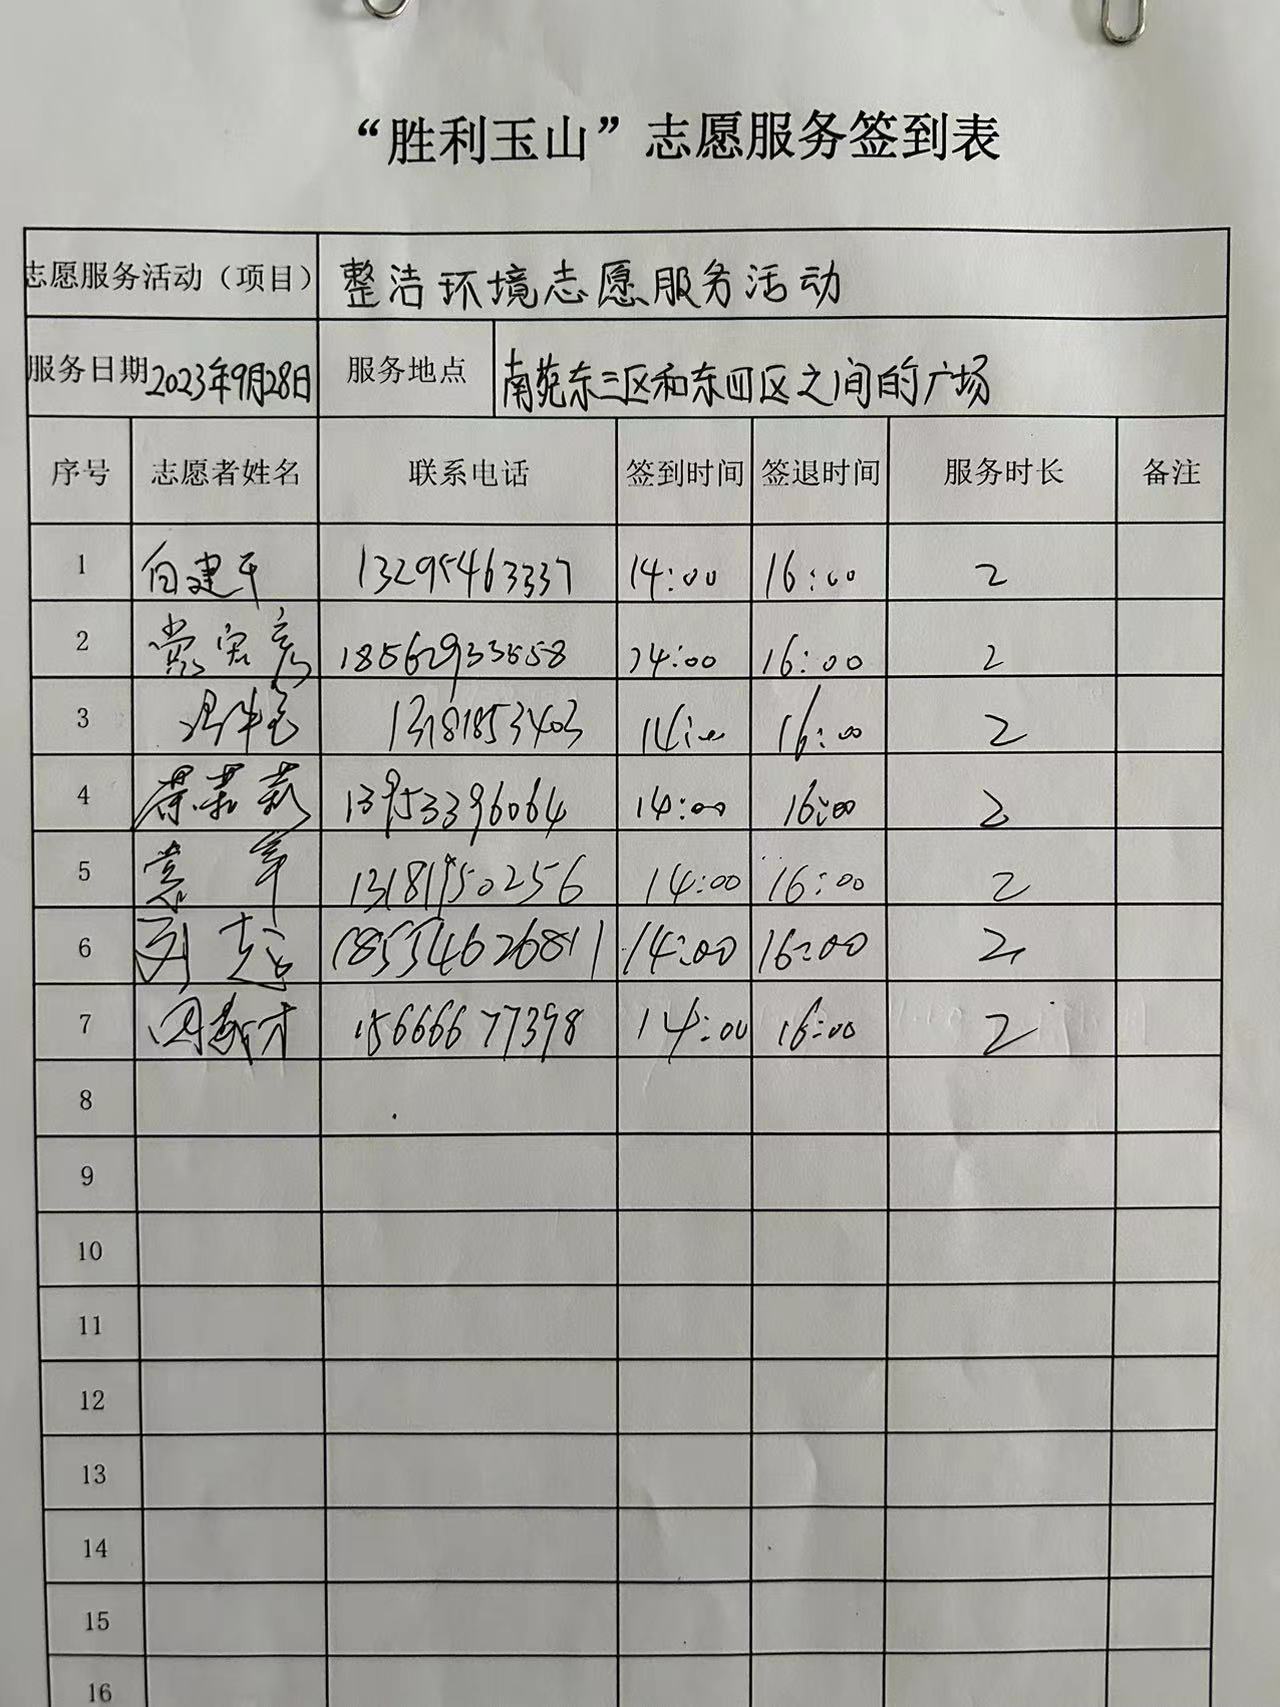 “胜利玉山”志愿服务签到表
志愿服务活动（项目） 整洁环境志愿服务活动
服务日期 2023年9月28日 服务地点 南苑东三区和东四区之间的广场
序号 志愿者姓名 联系电话 签到时间 签退时间 服务时长 备注
1 白建平 13295463337 14:00 16:00 2
2 18562933558 14:00 16:00 2
3 13181853403 14:00 16:00 2
4 13953396064 14:00 16:00 2
5 13181950256 14:00 16:00 2
6 刘志 18554626811 14:00 16:00 2
7 15666677398 14:00 16:00 2
8
9
10
11
12
13
14
15
16